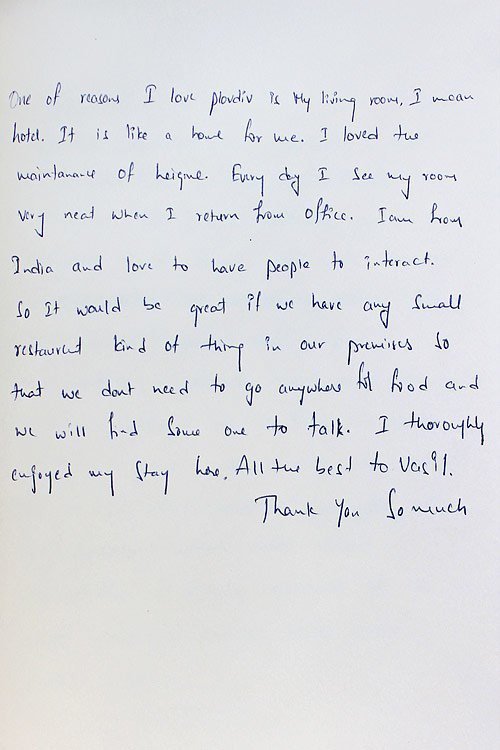 One of reasons I love plovdiv is My living room, I mean
hotel. It is like a home for me. I loved the
maintanance of heigine. Every day I see my room
very neat when I return from office. I am from
India and love to have people to interact.
So It would be great if we have any small
restaurent kind of thing in our premises so
that we dont need to go anywhere for food and
we will find some one to talk. I thoroughly
enjoyed my stay here. All the best to Vasil.
Thank You So much